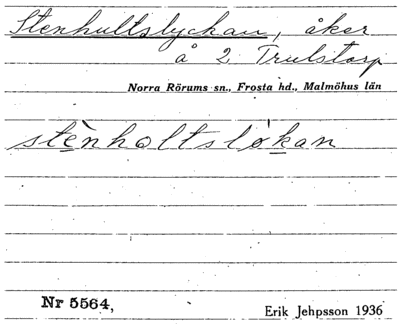 Stenhultslyckan, åker
å 2 Trulstorp
Norra Rörums sn., Frosta hd., Malmöhus län
stènholtslókan
Nr 5564,
Erik Jehpsson 1936